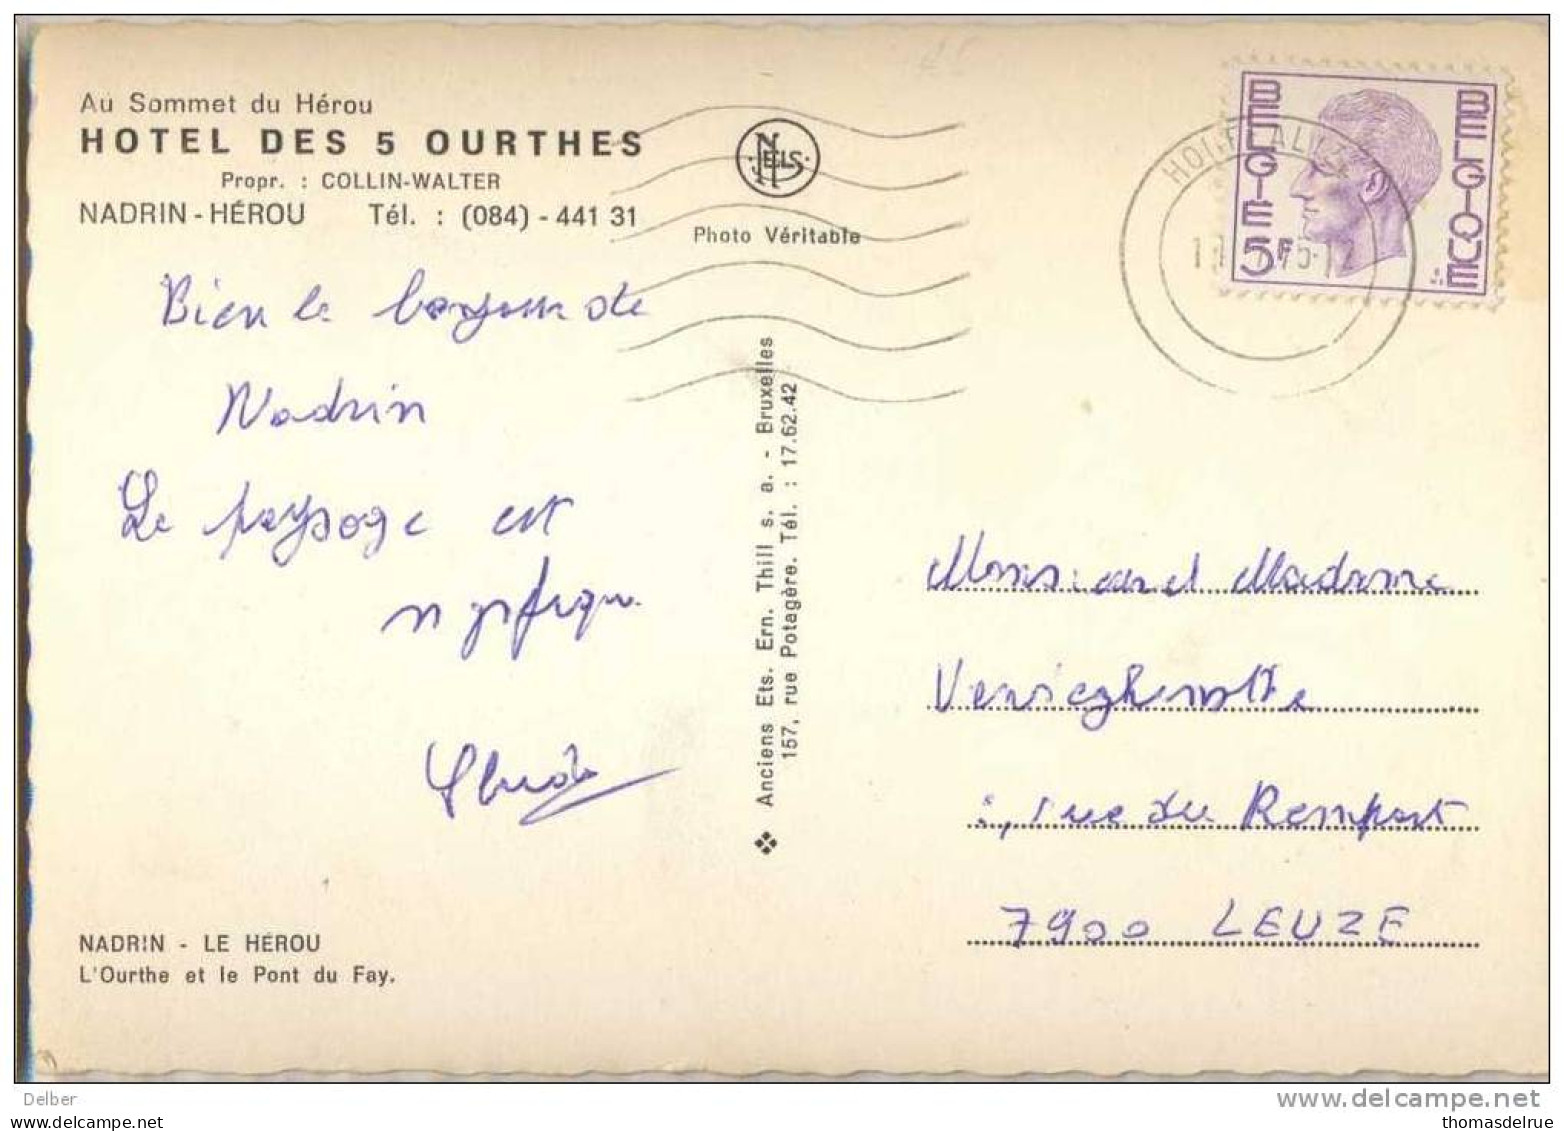 Au Sommet du Hérou
HOTEL DES 5 OURTHES
Propr. : COLLIN-WALTER
NADRIN - HÉROU Tél. : (084) - 441 31
NELS
Photo Véritable
BELGIE 5F BELGIQUE
Bien le de
Nadrin
Le paysage est
Anciens Ets. Ern. Thill s. a. - Bruxelles
157, rue Potagère. Tél. : 17.62.42
Madame
rue du Rempart
7900 LEUZE
NADRIN - LE HÉROU
L'Ourthe et le Pont du Fay.
Delber
delcampe.net
www.delcampe.net
thomasdelrue